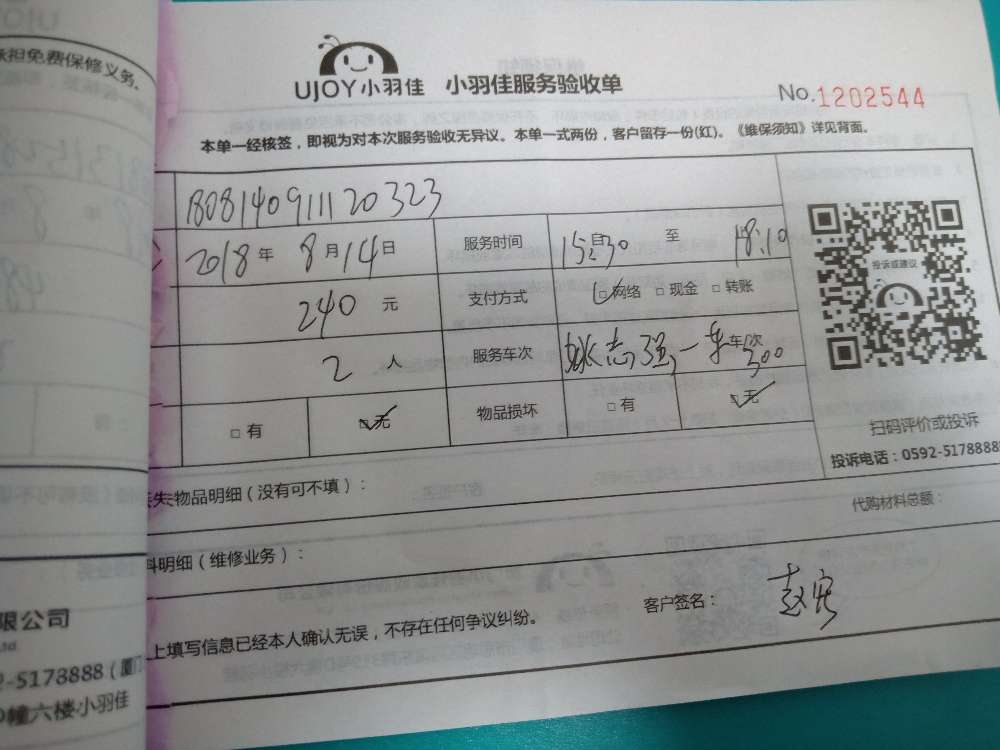 承担免费保修义务。
UJOY小羽佳 小羽佳服务验收单
No.1202544
本单一经核签，即视为对本次服务验收无异议。本单一式两份，客户留存一份(红)。《维保须知》详见背面。
180814091120323
2018年 8月14日 服务时间 15:30 至 18:10
投诉或建议
240 元 支付方式 □网络 □现金 □转账
2 人 服务车次 姚志强 一车 车/次
300
□有 □无 物品损坏 □有 □无
扫码评价或投诉
投诉电话：0592-5178888
失物品明细（没有可不填）：
代购材料总额：
料明细（维修业务）：
上填写信息已经本人确认无误，不存在任何争议纠纷。 客户签名：
限公司
Ltd
2-5178888（厦门
D幢六楼小羽佳